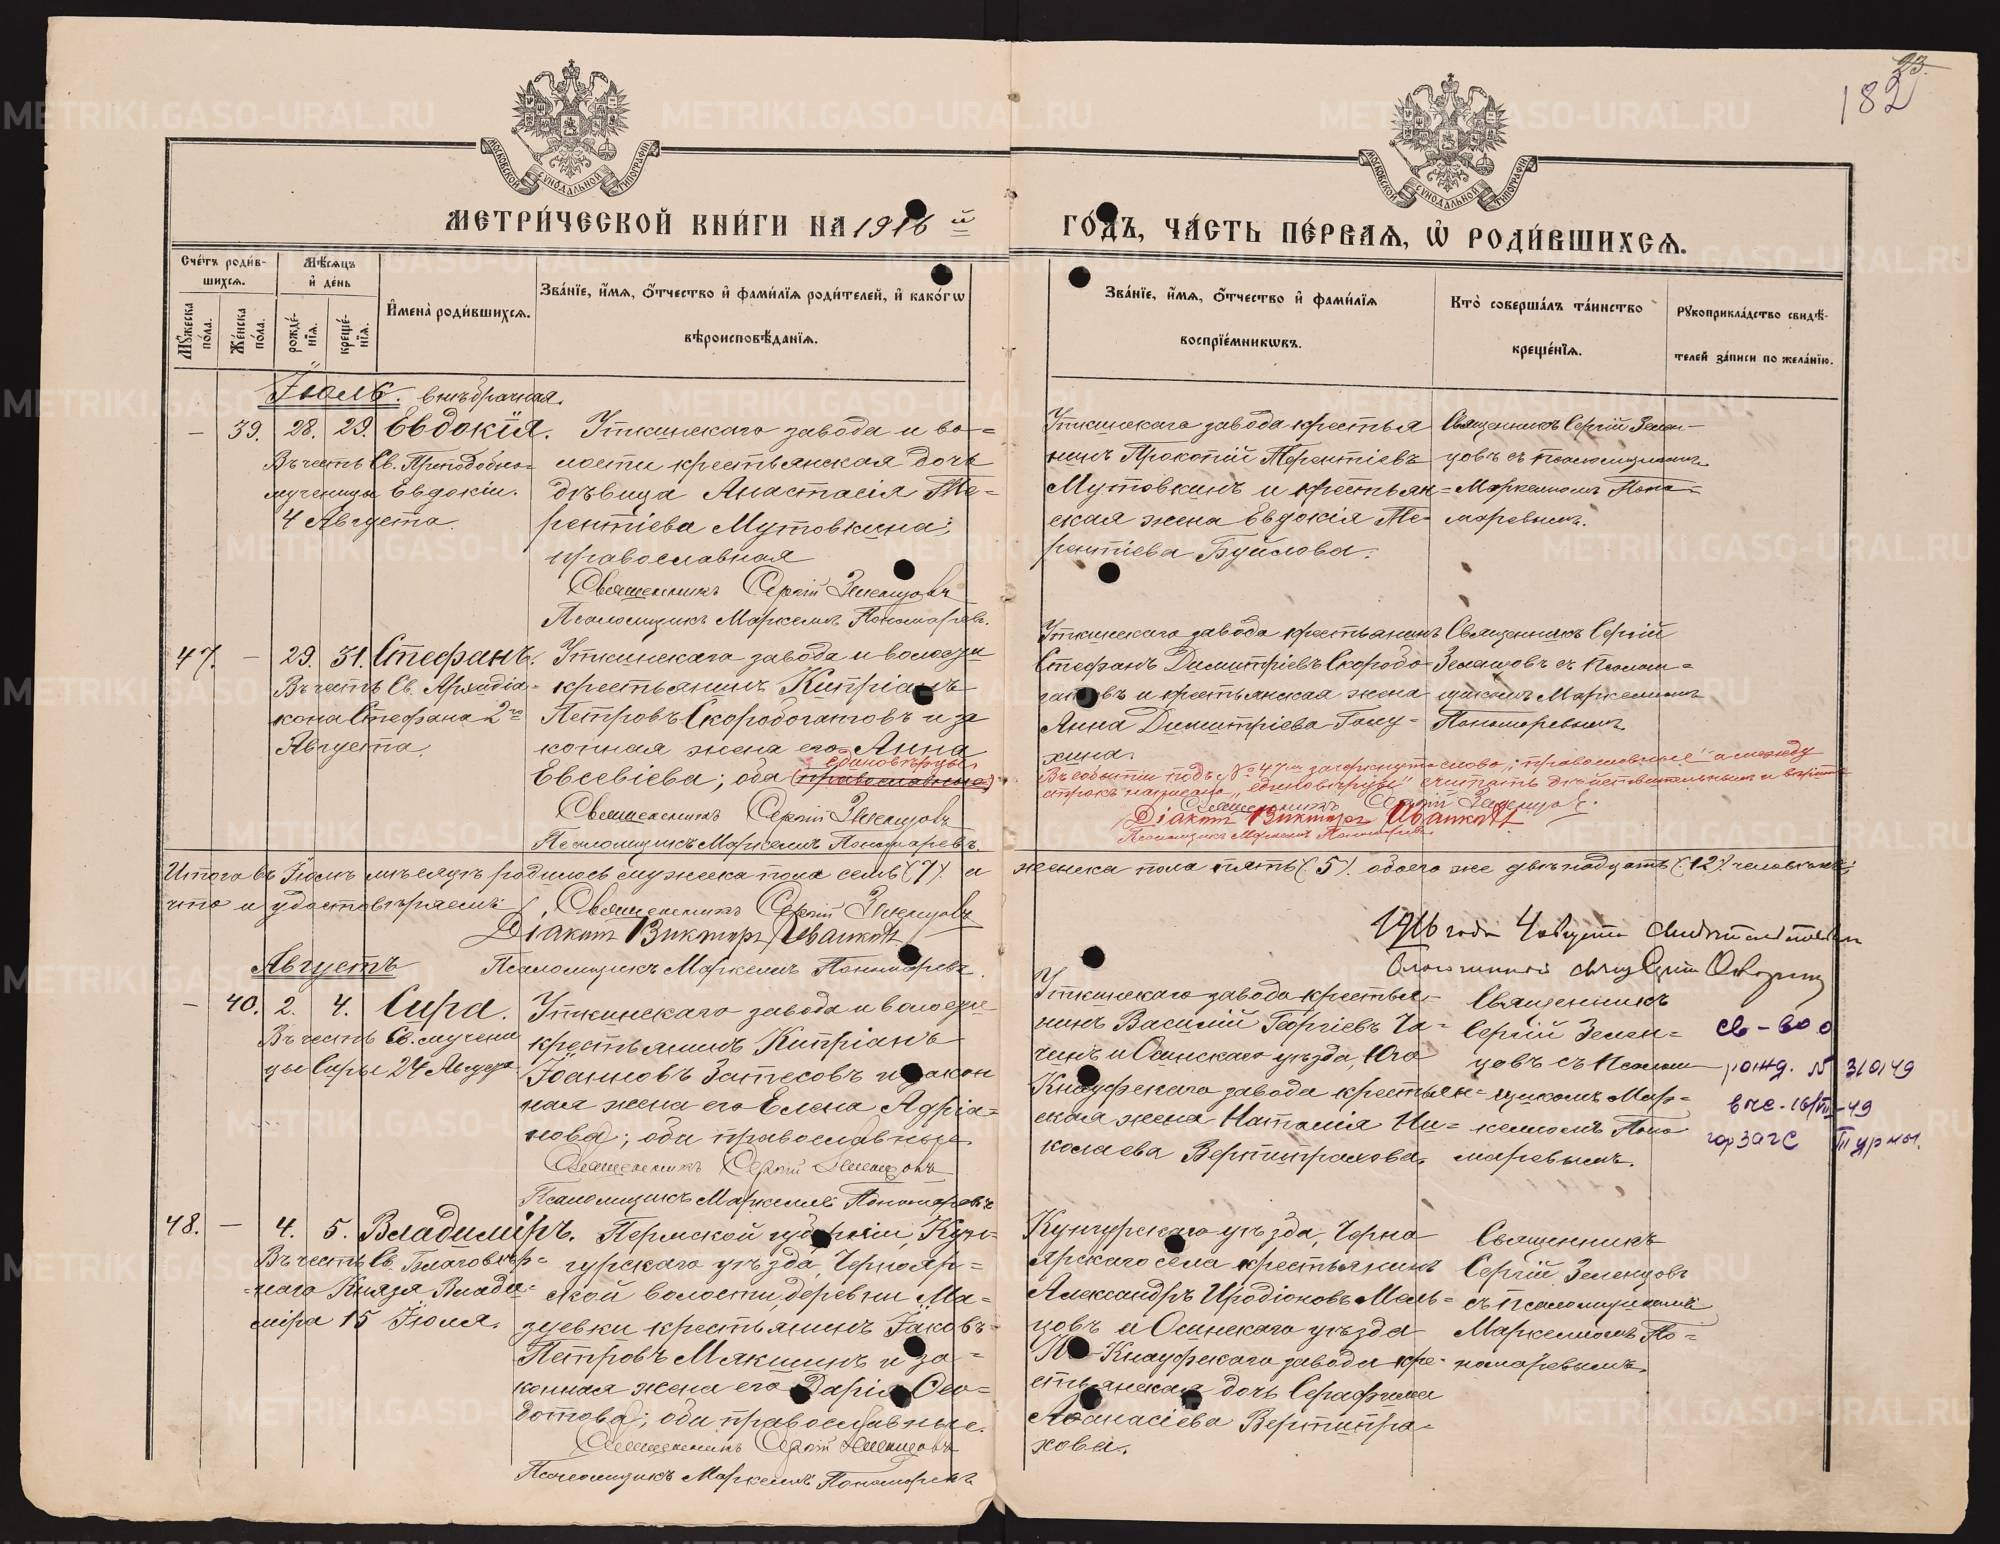 23.
182
МОСКОВСКОЙ СѴНОДАЛЬНОЙ ТИПОГРАФІИ
МОСКОВСКОЙ СѴНОДАЛЬНОЙ ТИПОГРАФІИ
МЕТРИ́ЧЕСКОЙ КНИ́ГИ НА 1916 й ГО́ДЪ, ЧА́СТЬ ПЕ́РВАѦ, Ѡ҆ РОДИ́ВШИХСѦ.
Сче́тъ роди́в-
шихсѧ.
Мꙋ́жеска по́ла.
Же́нска по́ла.
Мѣ́сѧцъ
и҆ де́нь
рожде́-нїѧ.
креще́-нїѧ.
И҆мена̀ роди́вшихсѧ.
Зва́нїе, и҆́мѧ, ѻ҆́тчество и҆ фами́лїѧ роди́телей, и҆ како́гѡ
вѣроисповѣ́данїѧ.
Зва́нїе, и҆́мѧ, ѻ҆́тчество и҆ фами́лїѧ
воспрїе́мникѡвъ.
Кто̀ соверша́лъ та́инство
креще́нїѧ.
Рꙋкоприкла́дство свидѣ́-
телей за́писи по жела́нїю.
Іюль. внѣбрачная.
— 39. 28. 29. Евдокія.
Въ честь Св. Преподобно-
мученицы Евдокіи.
4 Августа.
Уткинскаго завода и во-
лости крестьянская дочь
дѣвица Анастасія Те-
рентіева Мутовкина;
православная
Священникъ Сергій Зеленцовъ
Псаломщикъ Маркеллъ Пономаревъ.
Уткинскаго завода крестья
нинъ Прокопій Терентіевъ
Мутовкинъ и крестьян-
ская жена Евдокія Те-
рентіева Буйлова.
Священникъ Сергій Зелен-
цовъ съ Псаломщикомъ
Маркелломъ Поно-
маревымъ.
47. — 29. 31. Стефанъ.
Въ честь Св. Архидіа-
кона Стефана 2го
Августа.
Уткинскаго завода и волости
крестьянинъ Кипріанъ
Петровъ Скоробогатовъ и за
конная жена его Анна
единовѣрцы
Евсевіева; оба (православные)
Священникъ Сергій Зеленцовъ
Псаломщикъ Маркеллъ Пономаревъ.
Уткинскаго завода крестьянинъ
Стефанъ Димитріевъ Скоробо
гатовъ и крестьянская жена
Анна Димитріева Голу-
хина.
Священникъ Сергій
Зеленцовъ съ Псалом-
щикомъ Маркелломъ
Пономаревымъ
Въ событіи подъ № 47м зачеркнуто слово: „православные" а между
строкъ написано „единовѣрцы" считать дѣйствительнымъ и
Священникъ Сергій Зеленцовъ.
Діаконъ Викторъ Ивановъ
Псаломщикъ Маркеллъ Пономаревъ
Итого въ Іюлѣ мѣсяцѣ родилось мужеска пола семь (7). и женска пола пять (5). обоего же двѣнадцать (12). человѣкъ;
что и удостовѣряемъ: Священникъ Сергій Зеленцовъ
Діаконъ Викторъ Ивановъ
Псаломщикъ Маркеллъ Пономаревъ.
1916 года 4 августа
Благочинный
Августъ
— 40. 2. 4. Сира.
Въ честь Св. мучени
цы Сиры 24 Августа
Уткинскаго завода и волости
крестьянинъ Кипріанъ
Іоанновъ Затесовъ и закон
ная жена его Елена Адріа-
нова; оба православные
Священникъ Сергій Зеленцовъ
Псаломщикъ Маркеллъ Пономаревъ
Уткинскаго завода крестья-
нинъ Василій Георгіевъ Ча-
чинъ и Осинскаго уѣзда, Юго
Кнауфскаго завода крестьян-
ская жена Наталія Ни-
колаева Вертипрахова.
Священникъ
Сергій Зелен-
цовъ съ Псалом
щикомъ Мар-
келломъ Поно
маревымъ.
св-во о
рожд. N 31049
16/III-49
горзагс
48. — 4. 5. Владиміръ.
Въ честь Св. Благовѣр-
наго Князя Влади-
міра 15 Іюля.
Пермской губерніи, Кун-
гурскаго уѣзда, Чернояр-
ской волости, деревни Ма-
зуевки крестьянинъ Іаковъ
Петровъ Мякишинъ и за-
конная жена его Дарія Ѳео-
дотова; оба православные.
Священникъ Сергій Зеленцовъ
Псаломщикъ Маркеллъ Пономаревъ
Кунгурскаго уѣзда, Черно
ярскаго села крестьянинъ
Александръ Иродіоновъ Мель-
цовъ и Осинскаго уѣзда
Кнауфскаго завода кре-
стьянская дочь Серафима
Аѳанасіева Вертипра-
хова.
Священникъ
Сергій Зеленцовъ
съ Псаломщикомъ
Маркелломъ По-
номаревымъ.
METRIKI.GASO-URAL.RU